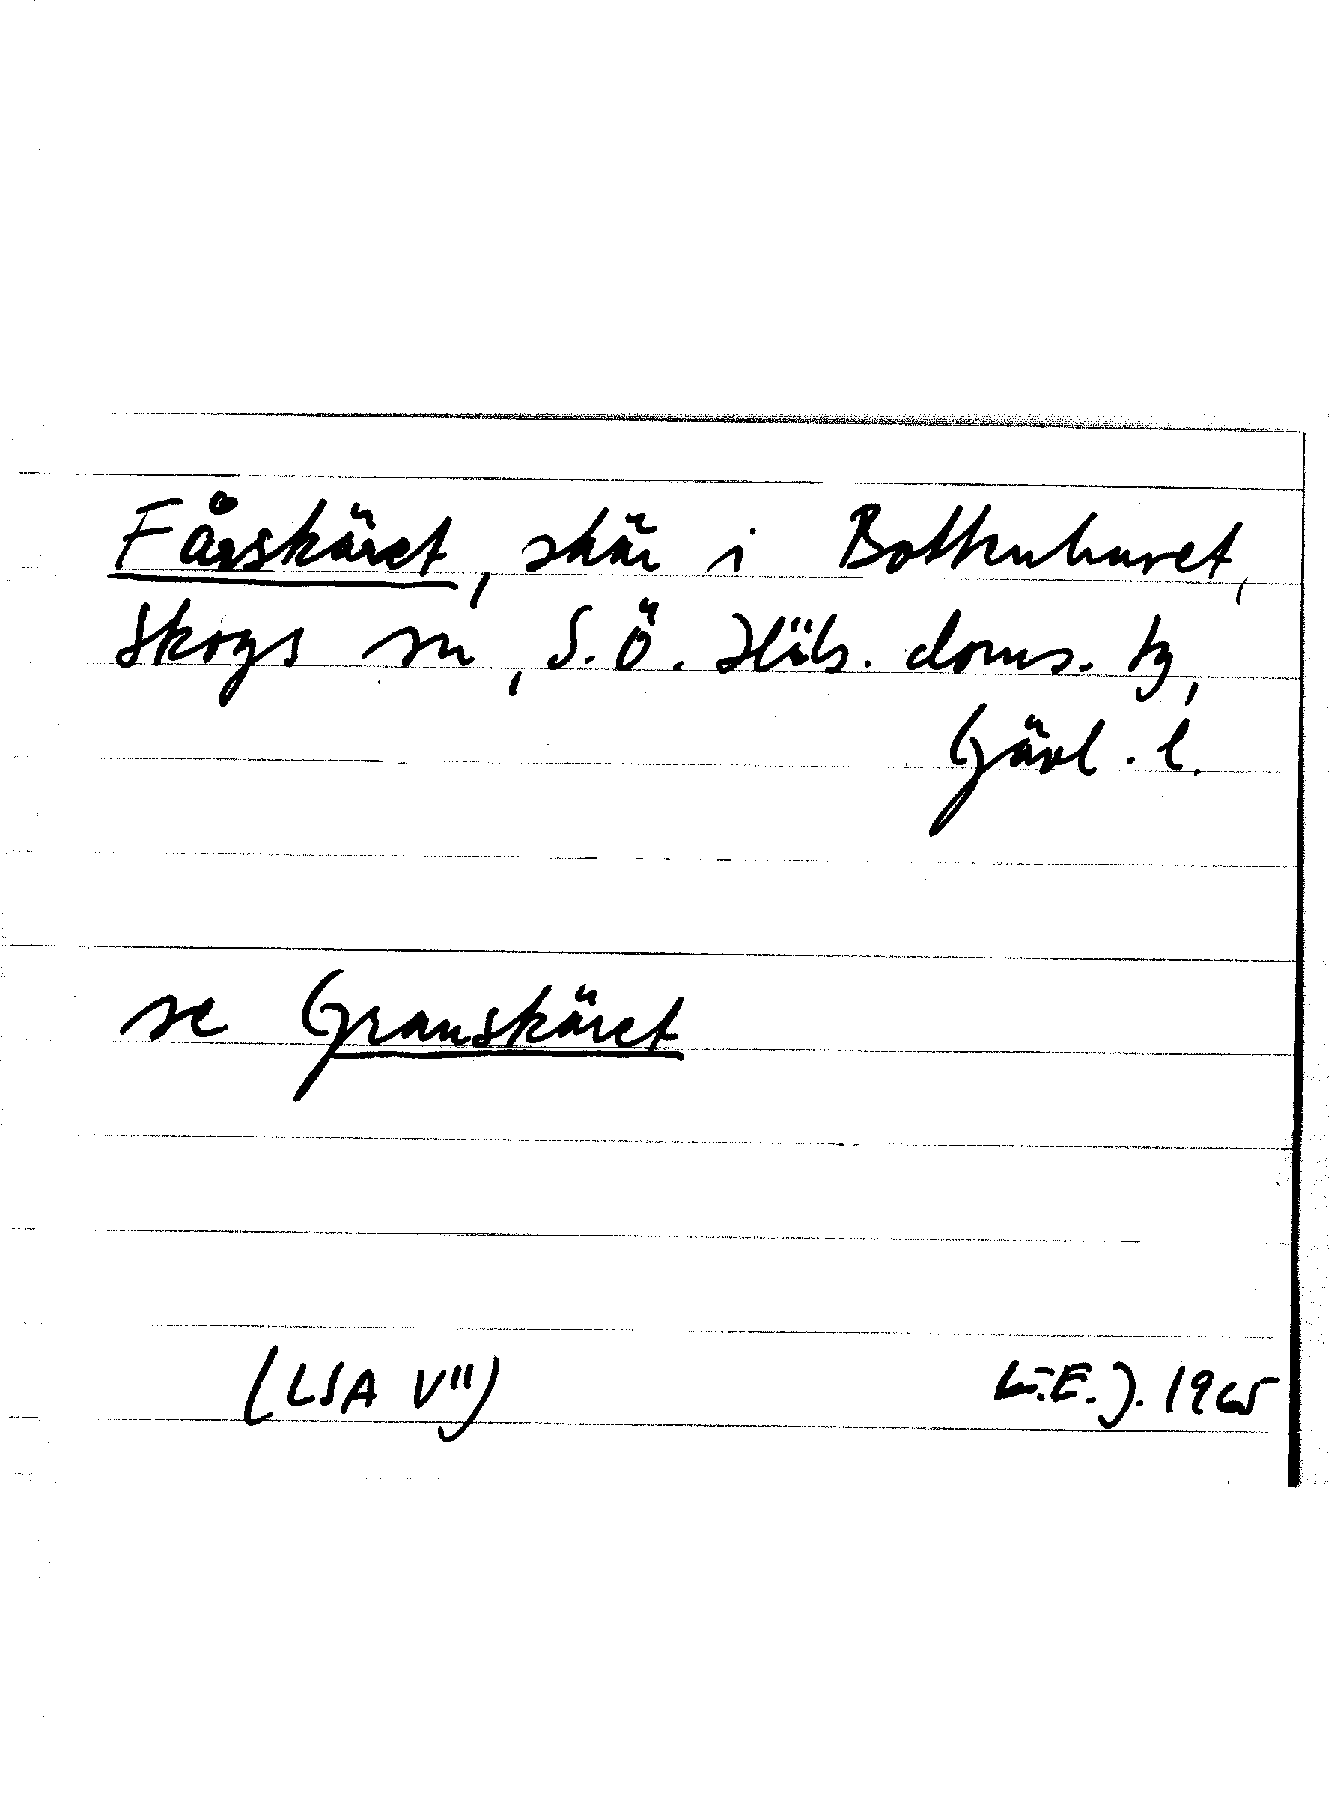 Fårskäret, skär i Bottenhavet,
Skogs sn, S.Ö. Häls. doms. tg,
Gävl. l.
se Granskäret
(LSA V")
E. J. 1965